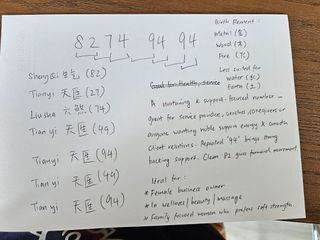 8274 94 94
ShengQi 生气 (82)
Tianyi 天医 (27)
Liusha 六煞 (74)
Tianyi 天医 (49)
Tianyi 天医 (94)
Tianyi 天医 (49)
Tianyi 天医 (94)
Birth Element :
Metal (金)
Wood (木)
Fire (火)
Less suited for
water (水)
Earth (土)
Good for Health, Service
A nurturing & support-focused number —
great for service provider, wellness, caregivers or
anyone wanting noble support energy & smooth
client relations. Repeated '94' brings strong
backing support. Clean 82 gives forward movement.
Ideal for :
* Female business owner
* In wellness/beauty/massage
* Family focused women who prefers safe strength.